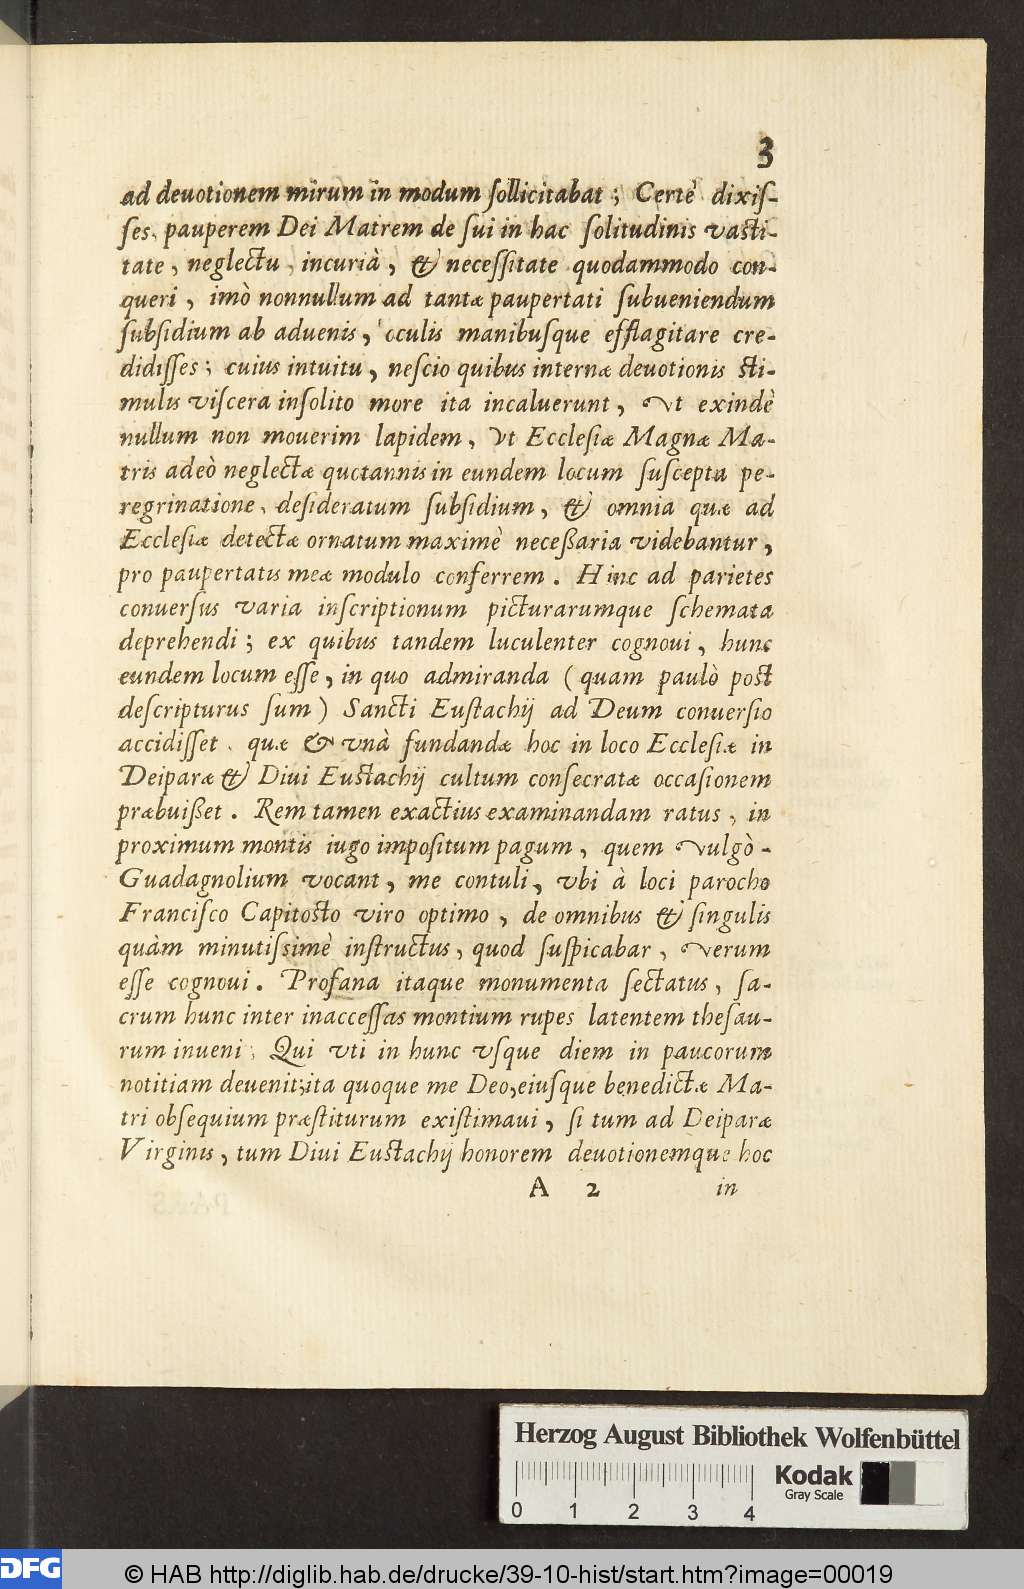 3
ad deuotionem mirum in modum ſollicitabat ; Certè dixiſ-
ſes, pauperem Dei Matrem de ſui in hac ſolitudinis vaſti-
tate, neglectu, incurià, & neceſſitate quodammodo con-
queri, imò nonnullum ad tantæ paupertati ſubueniendum
ſubſidium ab aduenis, occulis manibuſque efflagitare cre-
didiſſes; cuius intuitu, neſcio quibus internæ deuotionis ſti-
mulis viſcera inſolito more ita incaluerunt, vt exindè
nullum non mouerim lapidem, vt Eccleſiæ Magnæ Ma-
tris adeò neglectæ quotannis in eundem locum ſuſcepta pe-
regrinatione, deſideratum ſubſidium, & omnia quæ ad
Eccleſiæ detectæ ornatum maximè neceßaria videbantur,
pro paupertatis meæ modulo conferrem. Hinc ad parietes
conuerſus varia inſcriptionum picturarumque ſchemata
deprehendi; ex quibus tandem luculenter cognoui, hunc
eundem locum eſſe, in quo admiranda (quam paulò poſt
deſcripturus ſum) Sancti Euſtachij ad Deum conuerſio
accidiſſet. quæ & vnà fundandæ hoc in loco Eccleſiæ in
Deiparæ & Diui Euſtachij cultum conſecratæ occaſionem
præbuißet. Rem tamen exactius examinandam ratus, in
proximum montis iugo impoſitum pagum, quem vulgò -
Guadagnolium vocant, me contuli, vbi à loci parocho
Franciſco Capitoſto viro optimo, de omnibus & ſingulis
quàm minutiſsimè inſtructus, quod ſuſpicabar, verum
eſſe cognoui. Profana itaque monumenta ſectatus, ſa-
crum hunc inter inacceſſas montium rupes latentem theſau-
rum inueni; Qui vti in hunc vſque diem in paucorum
notitiam deuenit; ita quoque me Deo, eiuſque benedictæ Ma-
tri obſequium præſtiturum exiſtimaui, ſi tum ad Deiparæ
Virginis, tum Diui Euſtachij honorem deuotionemque hoc
A 2 in
Herzog August Bibliothek Wolfenbüttel
Kodak
Gray Scale
0 1 2 3 4
DFG © HAB http://diglib.hab.de/drucke/39-10-hist/start.htm?image=00019